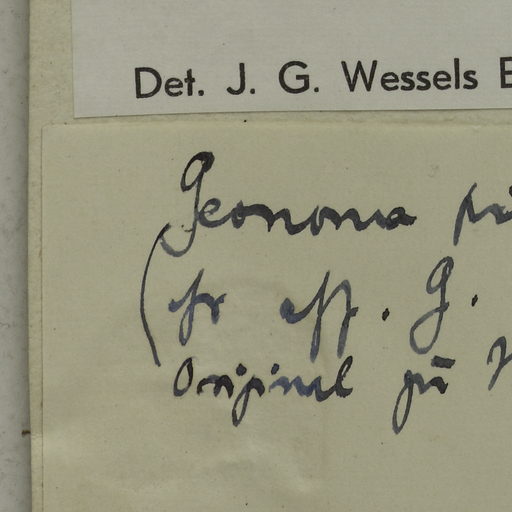 Det. J. G. Wessels B
Geonoma pi
( fr aff. G.
Original på